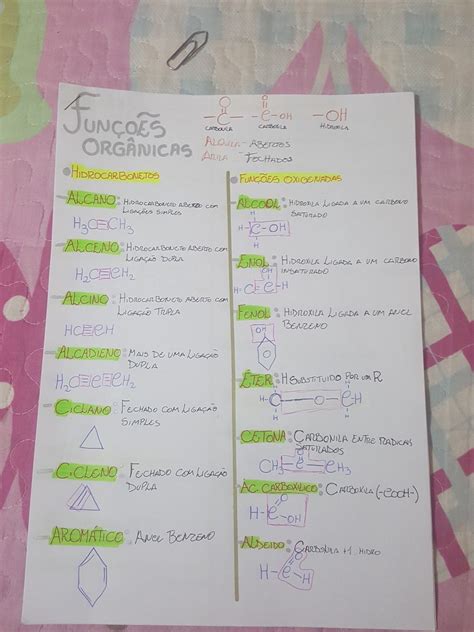 FUNÇOẼS
ORGÂNICAS
O
-C-
CARBONILA
O
-C-OH
CARBOXILA
-OH
HIDROXILA
ALQUILA - ABERTOS
ARILA - FECHADOS
HIDROCARBONETOS
ALCANO: HIDROCARBONETO ABERTO COM
LIGAÇÕES SIMPLES
ALCENO: HIDROCARBONETO ABERTO COM
LIGAÇÃO DUPLA
H₂C CH₂
ALCINO: HIDROCARBONETO ABERTO COM
LIGAÇÃO TRIPLA
HC≡CH
ALCADIENO: MAIS DE UMA LIGAÇÃO
DUPLA
CICLANO: FECHADO COM LIGAÇÃO
SIMPLES
CICLENO: FECHADO COM LIGAÇÃO
DUPLA
AROMÁTICO: ANEL BENZENO
FUNÇÕES OXIGENADAS
ALCOOL: HIDROXILA LIGADA A UM CARBONO
SATURADO
H
H-C-OH
H
ENOL: HIDROXILA LIGADA A UM CARBONO
INSATURADO
FENOL: HIDROXILA LIGADA A UM ANEL
BENZENO
OH
ÉTER: H SUBSTITUIDO POR UM R
CETONA: CARBONILA ENTRE RADICAIS
SATURADOS
O
CH₃-C-CH₃
AC. CARBOXILICO: CARBOXILA (-COOH-)
O
H-C
OH
ALDEIDO: CARBONILA +1 HIDRO
O
H-C
H